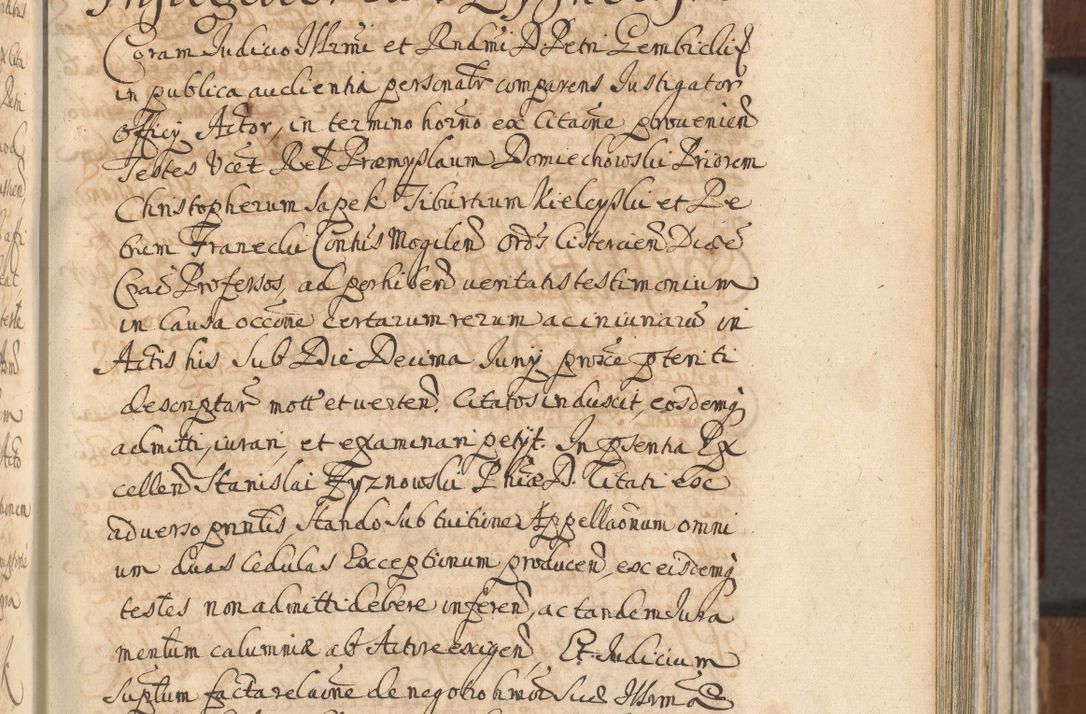 Coram Judicio Illrmi et Rndmi D Petri Gembicki
in publica audientia personalr comparens Instigator
Officy Actor, in termino horno ex Citaone provenien
Testes Vcet Red Præmyslaum Domiechowski Priorem
Christopherum Sapek Tiburtium Kielcyski et Pe
trum Franecki Contus Mogilen Ords Cistercien Diæc
Crac Professos, ad perhiben veritatis testimonium
in Causa occone certarum rerum ac iniuriaru in
Actis his Sub Die Decima Juny proxe pteriti
descriptar mott et verten. Citatos induxit, eosdemq
admitti, iurari, et examinari petyt. In psentia Ex
cellen Stanislai Zyznowski Phiæ D. Citati ex
adverso pnntis, stando sub tuitione Appellaonum omni
um duas Cedulas Exceptionum producen, ex eisdemq
testes non admitti debere inferen, ac tandem Jura
mentum calumniæ ab Actore exigen, Et Judicium
Suptum facta relaone de negotio hmoi Suæ Illrmæ D